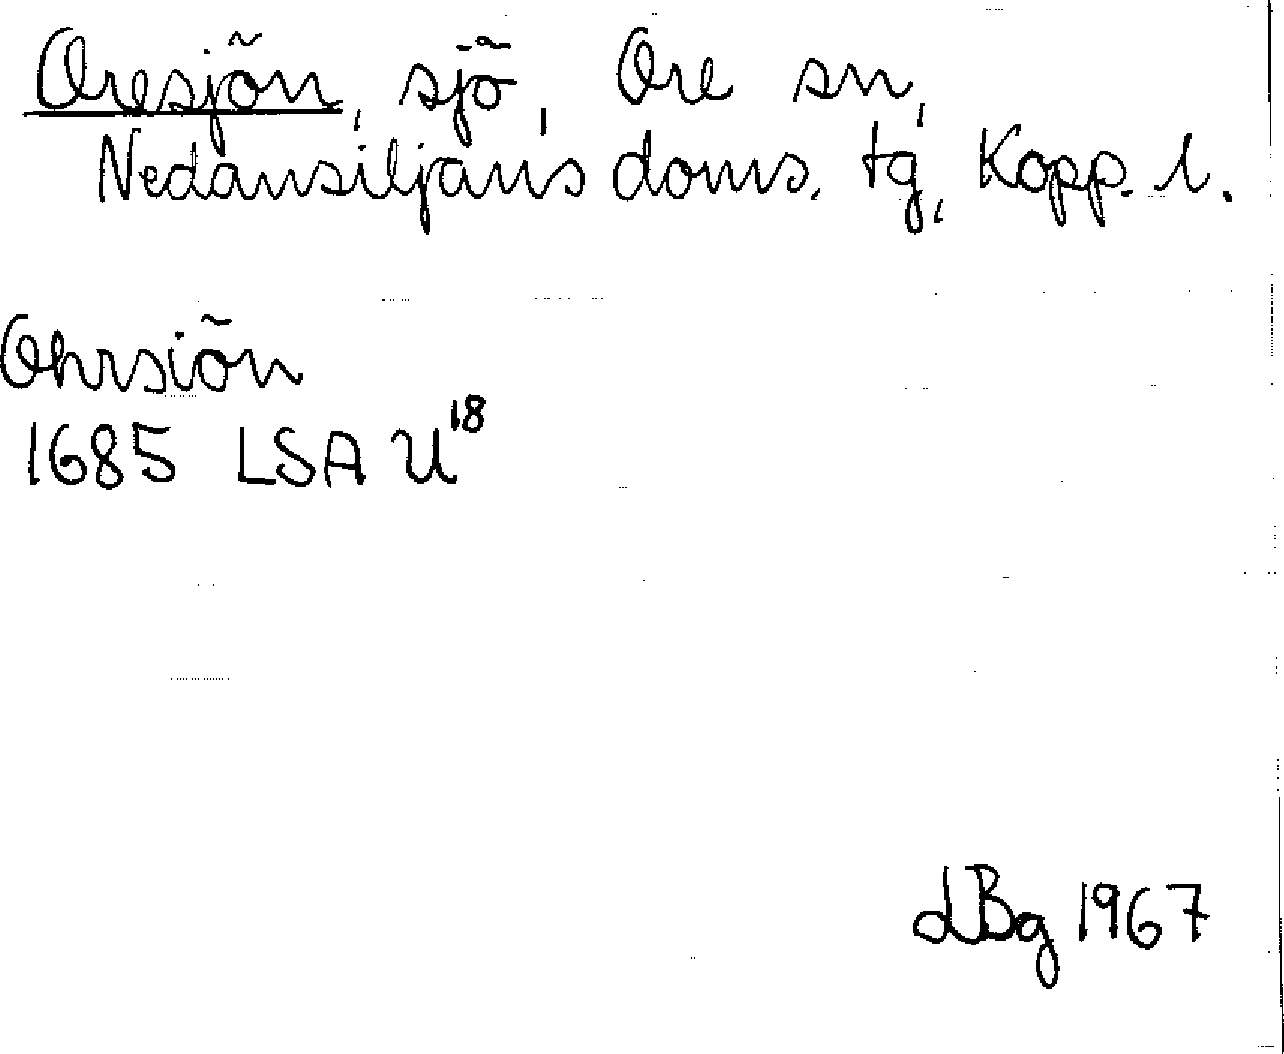 Oresjön, sjö, Ore sn,
Nedansiljans doms. tg, Kopp. l.
Ohrsiön
1685 LSA U18
LBg 1967